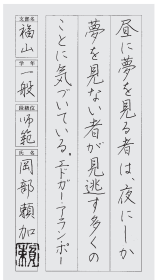 昼に夢を見る者は、夜にしか
夢を見ない者が見逃す多くの
ことに気づいている。エドガー・アラン・ポー
支部名
福山
学年
一般
段級位
師範
氏名
岡部頼加